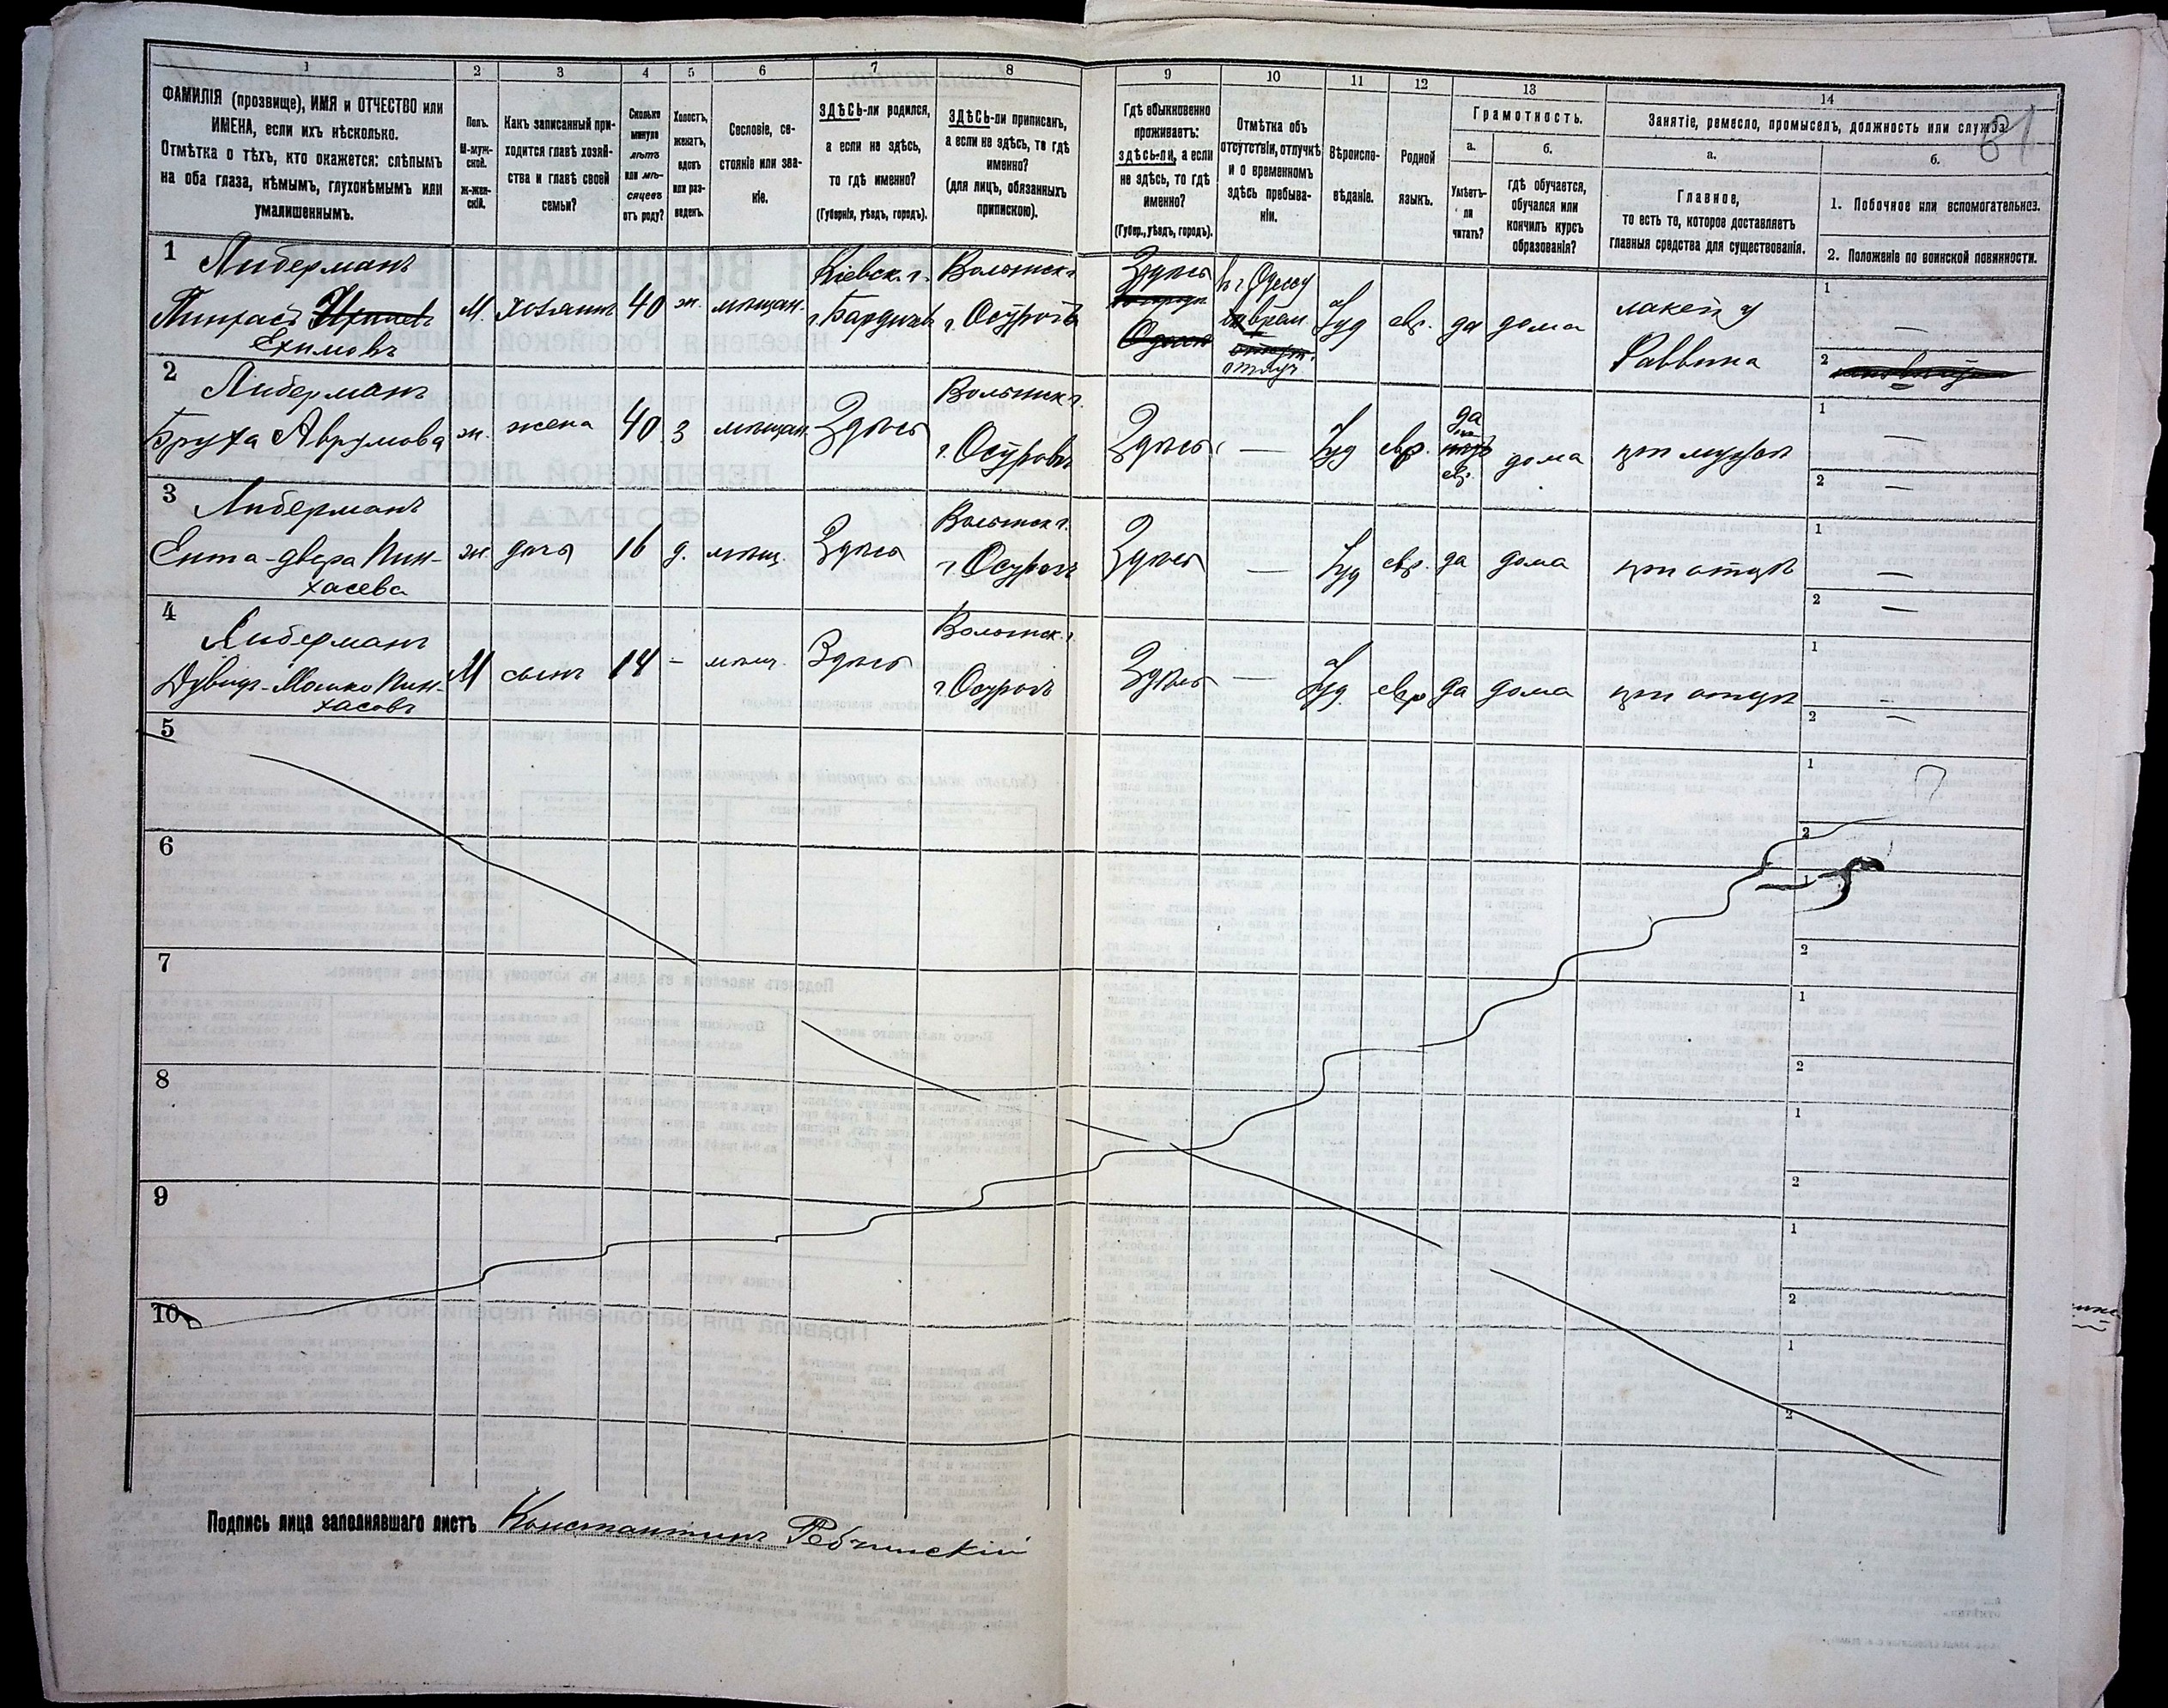 1
2
3
4
5
6
7
8
9
10
11
12
13
14
ФАМИЛІЯ (прозвище), ИМЯ и ОТЧЕСТВО или
ИМЕНА, если ихъ нѣсколько.
Отмѣтка о тѣхъ, кто окажется: слѣпымъ
на оба глаза, нѣмымъ, глухонѣмымъ или
умалишеннымъ.
Полъ.
М-муж-
ской.
Ж-жен-
скій.
Какъ записанный при-
ходится главѣ хозяй-
ства и главѣ своей
семьи?
Сколько
минуло
лѣтъ
или мѣ-
сяцевъ
отъ роду?
Холостъ,
женатъ,
вдовъ
или раз-
веденъ.
Сословіе, со-
стояніе или зва-
ніе.
ЗДѢСЬ-ли родился,
а если не здѣсь,
то гдѣ именно?
(Губернія, уѣздъ, городъ).
ЗДѢСЬ-ли приписанъ,
а если не здѣсь, то гдѣ
именно?
(для лицъ, обязанныхъ
припискою).
Гдѣ обыкновенно
проживаетъ:
здѣсь-ли, а если
не здѣсь, то гдѣ
именно?
(Губер., уѣздъ, городъ).
Отмѣтка объ
отсутствіи, отлучкѣ
и о временномъ
здѣсь пребыва-
ніи.
Вѣроиспо-
вѣданіе.
Родной
языкъ.
Грамотность.
а.
Умѣетъ-
ли
читать?
б.
гдѣ обучается,
обучался или
кончилъ курсъ
образованія?
Занятіе, ремесло, промыселъ, должность или служба
а.
Главное,
то есть то, которое доставляетъ
главныя средства для существованія.
б.
1. Побочное или вспомогательное.
2. Положеніе по воинской повинности.
61
1
Либерманъ
Пинхасъ
Ехимовъ
М.
хозяинъ
40
ж.
мѣщан.
Кіевск. г.
г. Бардичев
Волынск г.
г. Острогъ
Здѣсь
въ г. Одессу
врем.
отлуч
Іуд
евр.
да
дома
лакей у
Раввина
1
—
2
2
Либерманъ
Бруха Аврумова
ж.
жена
40
з
мѣщан.
Здѣсь
Волынск г.
г. Острогъ
Здѣсь
—
Іуд
евр.
да
евр.
дома
при мужѣ
1
—
2
—
3
Либерманъ
Ента-двера Пин-
хасева
ж.
дочь
16
д.
мѣщ.
Здѣсь
Волынск г.
г. Острогъ
Здѣсь
—
Іуд
евр.
да
дома
при отцѣ
1
—
2
—
4
Либерманъ
Дувидъ-Мошко Пин-
хасовъ
М
сынъ
14
-
мѣщ.
Здѣсь
Волынск. г.
г. Острогъ
Здѣсь
—
Іуд.
евр
да
дома
при отцѣ
1
—
2
—
5
1
2
6
1
2
7
1
2
8
1
2
9
1
2
10
1
2
Подпись лица заполнявшаго листъ Константинъ Ребчинскій